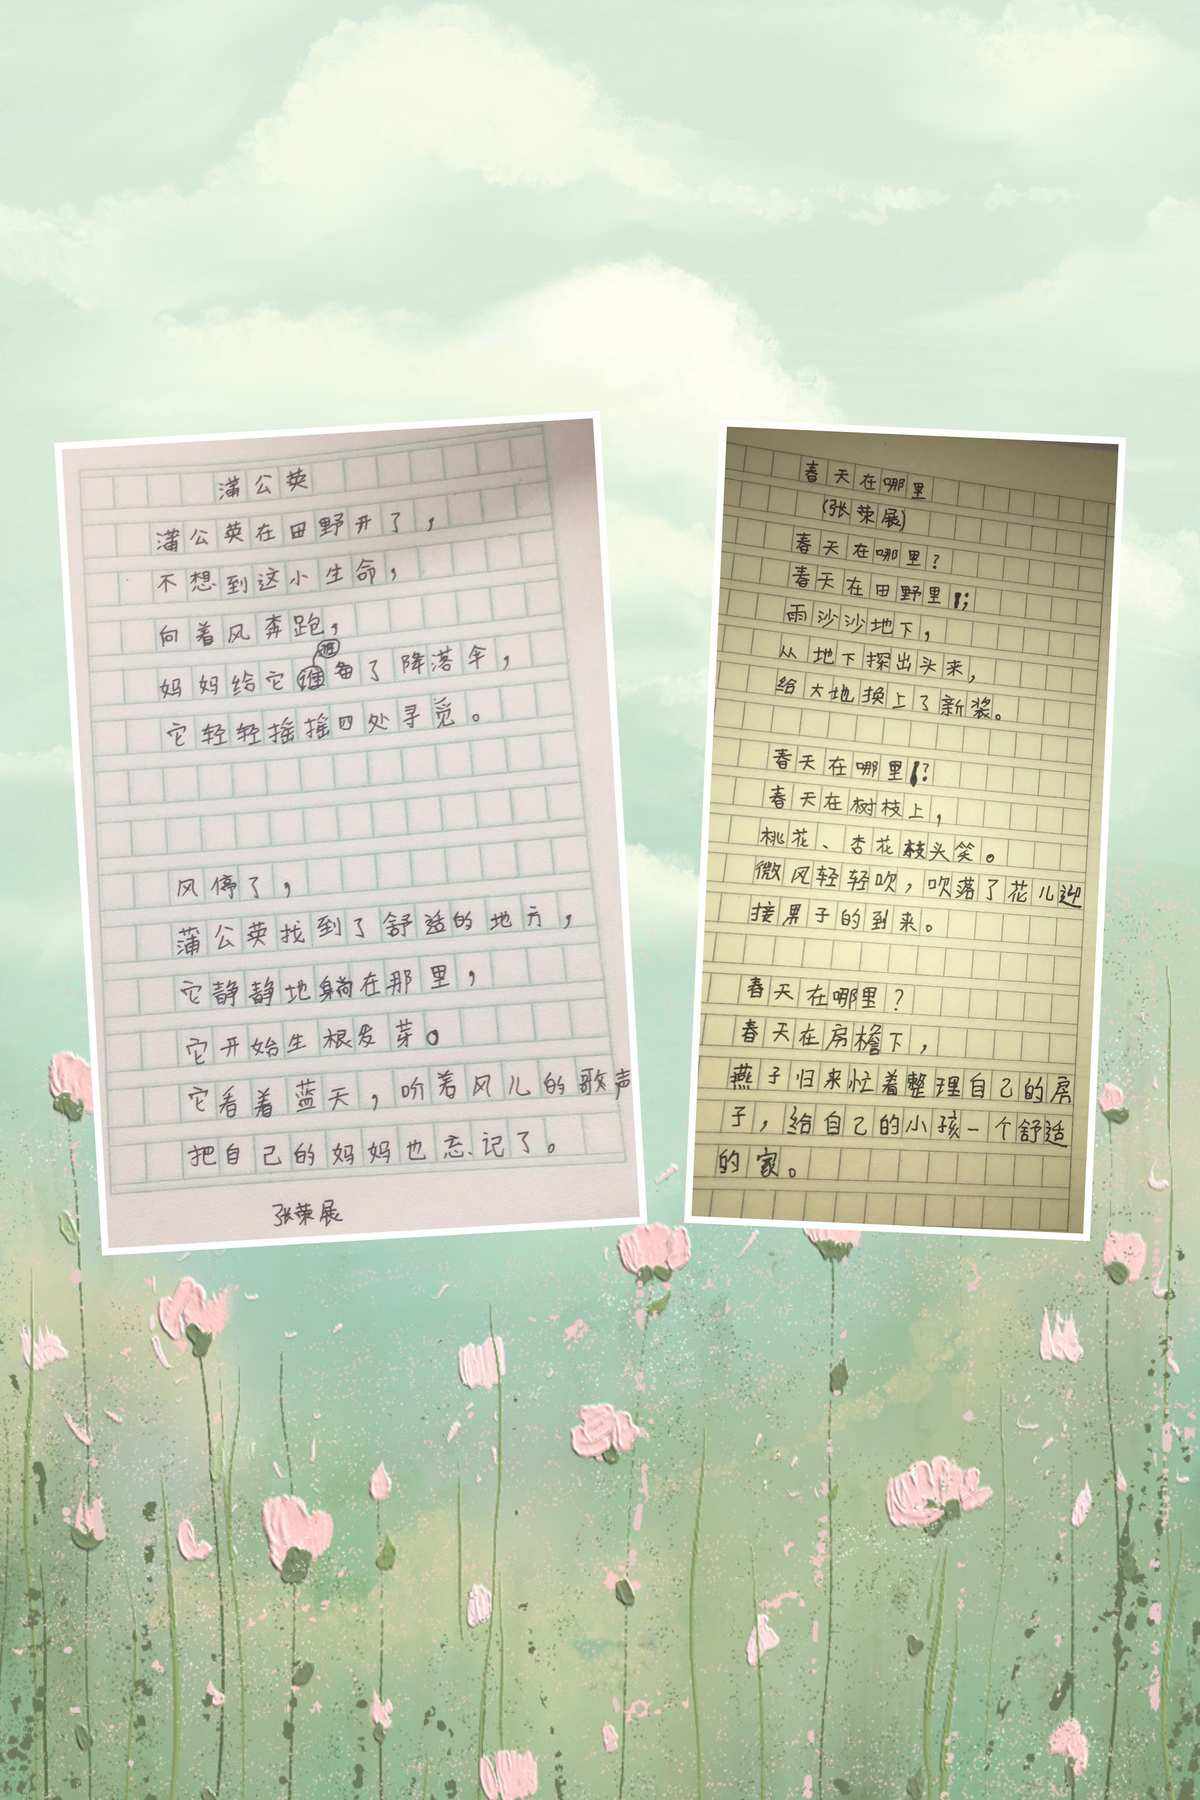 蒲公英
蒲公英在田野开了，
不想到这小生命，
向着风奔跑，
妈妈给它准备了降落伞，
它轻轻摇摇四处寻觅。
风停了，
蒲公英找到了舒适的地方，
它静静地躺在那里，
它开始生根发芽。
它看着蓝天，吩着风儿的歌声
把自己的妈妈也忘记了。
张荣展
春天在哪里
(张荣展)
春天在哪里？
春天在田野里；
雨沙沙地下，
从地下探出头来，
给大地换上了新装。
春天在哪里？
春天在树枝上，
桃花、杏花枝头笑。
微风轻轻吹，吹落了花儿迎
接果子的到来。
春天在哪里？
春天在房檐下，
燕子归来忙着整理自己的房
子，给自己的小孩一个舒适
的家。